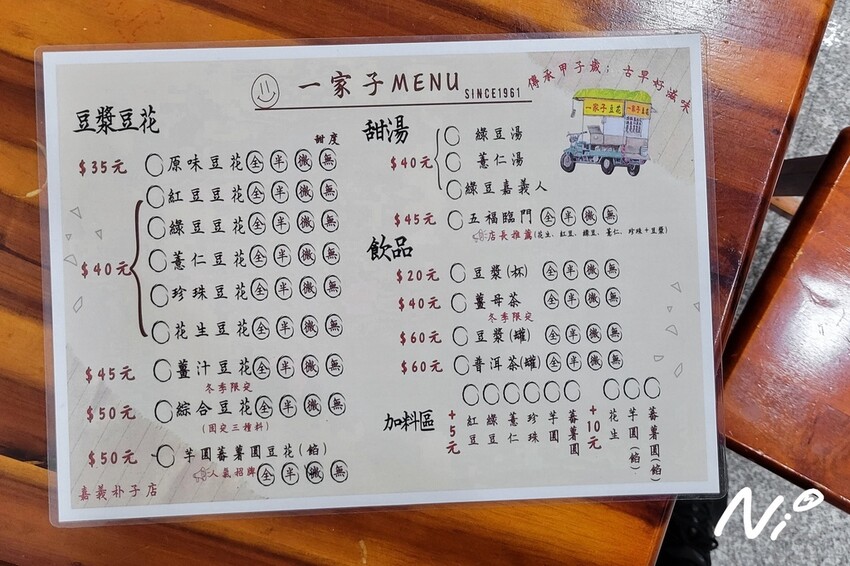 一家子MENU SINCE1961
傳承甲子歲；古早好滋味
一家子豆花
豆漿豆花
甜度
$35元 原味豆花 全 半 微 無
$40元
紅豆豆花 全 半 微 無
綠豆豆花 全 半 微 無
薏仁豆花 全 半 微 無
珍珠豆花 全 半 微 無
花生豆花 全 半 微 無
$45元 薑汁豆花 全 半 微 無
冬季限定
$50元 綜合豆花 全 半 微 無
(固定三種料)
$50元 芋圓蕃薯圓豆花(餡)
人氣招牌 全 半 微 無
嘉義朴子店
甜湯
$40元
綠豆湯
薏仁湯
綠豆嘉義人
$45元 五福臨門 全 半 微 無
店長推薦(花生、紅豆、綠豆、薏仁、珍珠+豆漿)
飲品
$20元 豆漿(杯) 全 半 微 無
$40元 薑母茶 全 半 微 無
冬季限定
$60元 豆漿(罐) 全 半 微 無
$60元 普洱茶(罐) 全 半 微 無
加料區
+5元
紅豆
綠豆
薏仁
珍珠
芋圓
蕃薯圓
+10元
花生
芋圓(餡)
蕃薯圓(餡)
Nio